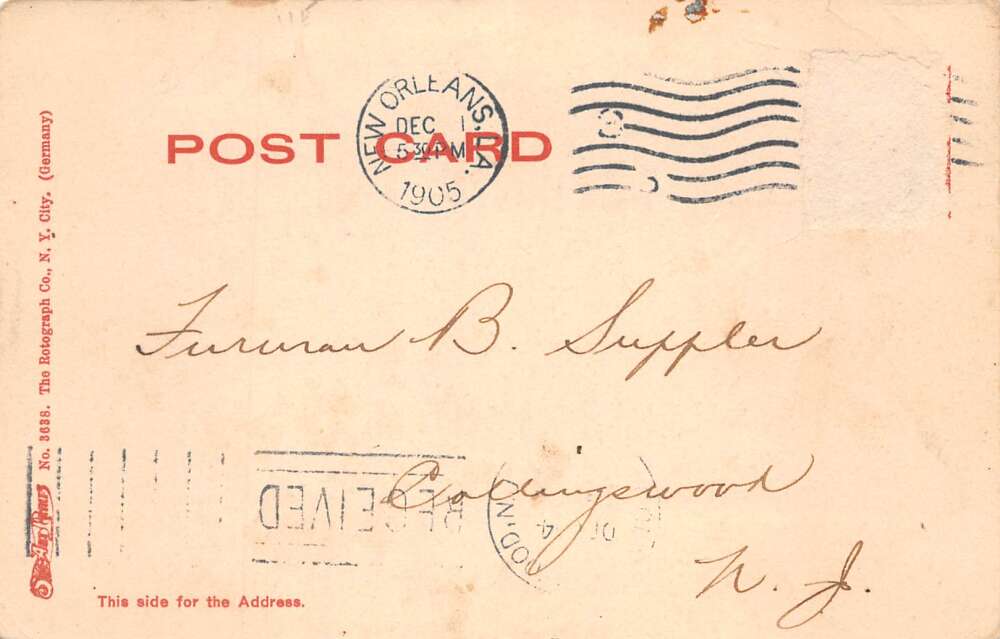 NEW ORLEANS, LA.
DEC 1
5 30 PM
1905
POST CARD
No. 3638. The Rotograph Co., N. Y. City. (Germany)
Furman B. Suppler
Collingswood
N. J.
RECEIVED
OOD, N
DE
4
This side for the Address.